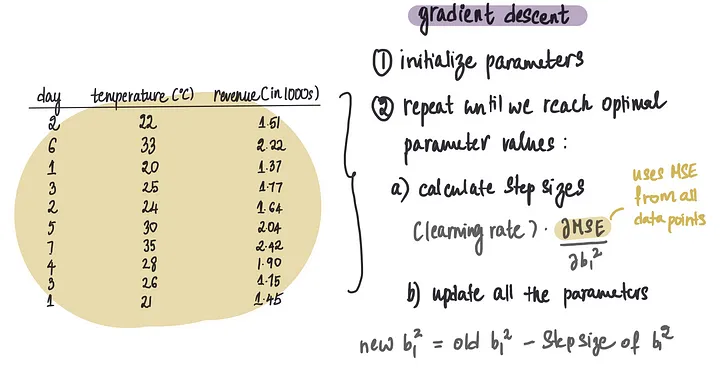 gradient descent
① initialize parameters
② repeat until we reach optimal
parameter values:
a) calculate step sizes
(learning rate) · ∂MSE/∂b₁²
uses MSE
from all
data points
b) update all the parameters
new b₁² = old b₁² - step size of b₁²
day temperature (°C) revenue (in 1000s)
2 22 1.51
6 33 2.22
1 20 1.37
3 25 1.77
2 24 1.64
5 30 2.04
7 35 2.42
4 28 1.90
3 26 1.75
1 21 1.45